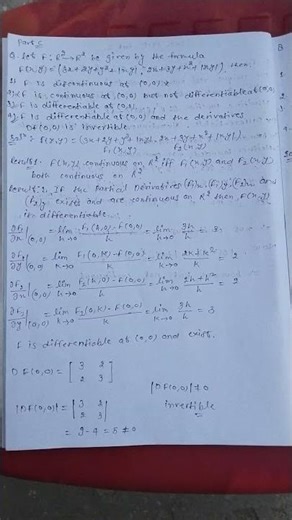 Part C
Q. Let F: R² → R² be given by the formula
F(x,y) = (3x+2y+y²+|xy|, 2x+3y+x²+|xy|) then
1) F is discontinuous at (0,0)
2) F is continuous at (0,0) but not differentiable at (0,0)
3) F is differentiable at (0,0)
4) F is differentiable at (0,0) and the derivatives
DF(0,0) is invertible
Solⁿ: F(x,y) = (3x+2y+y²+|xy|, 2x+3y+x²+|xy|)
F₁(x,y) F₂(x,y)
Result 1: F(x,y) continuous on R² iff F₁(x,y) and F₂(x,y)
both continuous on R²
Result 2: If the Partial Derivatives (F₁)x, (F₁)y, (F₂)x and
(F₂)y exists and are continuous on R² then F(x,y)
is differentiable.
∂F₁/∂x|(0,0) = lim h→0 F₁(h,0)-F(0,0)/h = lim h→0 3h/h = 3
∂F₁/∂y|(0,0) = lim k→0 F₁(0,k)-F(0,0)/k = lim k→0 2k+k²/k = 2
∂F₂/∂x|(0,0) = lim h→0 F₂(h,0)-F(0,0)/h = lim h→0 2h+h²/h = 2
∂F₂/∂y|(0,0) = lim k→0 F₂(0,k)-F(0,0)/k = lim k→0 3k/k = 3
F is differentiable at (0,0) and exist.
DF(0,0) = [3 2
2 3] |DF(0,0)| ≠ 0
|DF(0,0)| = |3 2
2 3| Invertible
= 9-4 = 5 ≠ 0